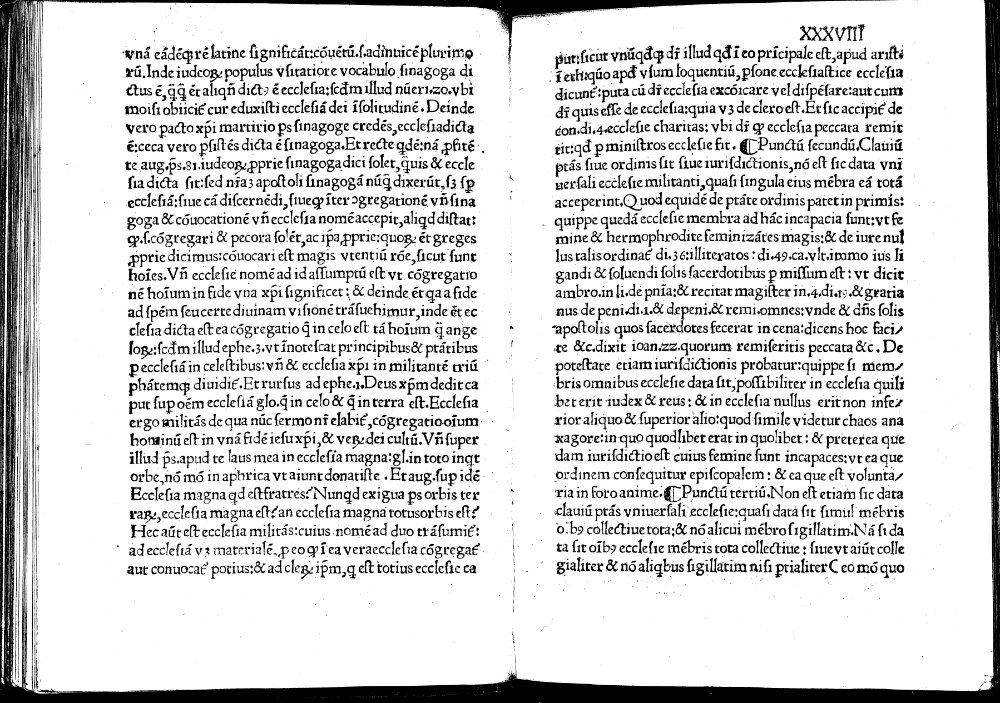 vnā eādēqꝫ rē latine ſignificāt:cōuētū.ſ.adinuicē plurimo
rū.Inde iudeoꝝ populus vſitatiore vocabulo ſinagoga di
ctus ē,q̄q̄ ēt aliqn̄ dictꝰ ē eccleſia:ſcd̄m illud nūeri.20.vbi
moiſi obiicit̄ cur eduxiſti eccleſiā dei ī ſolitudinē. Deinde
vero pacto xp̄i martirio ps ſinagoge credēs,eccleſia dicta
ē:ceca vero p̱ſiſtēs dicta ē ſinagoga.Et recte qdē:nā ꝓfitē
te aug.p̄s.81.iudeoꝝ,ꝓprie ſinagoga dici ſolet,q̄uis & eccle
ſia dicta ſit:ſed nr̄aꝫ apoſtoli ſinagogā nūq̄ dixerūt,ſꝫ ſp̄
eccleſiā:ſiue cā diſcernēdi,ſiue ꝙ īter ↄgregationē vn̄ ſina
goga & cōuocationē vn̄ eccleſia nomē accepit,aliqd diſtat:
ꝙ.ſ.cōgregari & pecora ſolēt,ac ip̄a ꝓprie:quoꝝ ēt greges
ꝓprie dicimus:cōuocari eſt magis vtentiū rōe,ſicut ſunt
hoīes.Vn̄ eccleſie nomē ad id aſſumptū eſt vt cōgregatio
nē hoīum in fide vna xp̄i ſignificet: & deinde ēt qa a fide
ad ſpēm ſeu certe diuinam viſionē trāſuehimur,inde ēt ec
cleſia dicta eſt ea cōgregatio q̄ in celo eſt tā hoīum q̄ ange
loꝝ:ſcd̄m illud ephe.3.vt īnoteſcat principibus & ptātibus
p̱ eccleſiā in celeſtibus:vn̄ & eccleſia xp̄i in militantē triū
phātemqꝫ diuidit̄. Et rurſus ad ephe.1.Deus xp̄m dedit ca
put ſup oēm eccleſiā glo.q̄ in celo & q̄ in terra eſt.Eccleſia
ergo militās de qua nūc ſermo nr̄ elabit̄,cōgregatio oīum
hominū eſt in vnā fidē ieſu xp̄i,& veꝝ dei cultū.Vn̄ ſuper
illud p̄s.apud te laus mea in eccleſia magna:gl.in toto inqt
orbe,nō mō in aphrica vt aiunt donatiſte . Et aug.ſup idē
Eccleſia magna qd eſt fratres? Nunqd exigua ps orbis ter
raꝝ,eccleſia magna eſt? an eccleſia magna totus orbis eſt?
Hec aūt eſt eccleſia militās:cuius nomē ad duo trāſumit̄:
ad eccleſiā vꝫ materialē.p̱ eo ꝙ ī ea vera eccleſia cōgregat̄
aut conuocat̄ potius:& ad cleꝝ ip̄m,q eſt totius eccleſie ca
XXXVIII
put:ſicut vnūqdꝙ dr̄ illud qd ī eo prīcipale eſt,apud ariſt.
ī ethi:quo apd̄ vſum loquentiū,p̱ſone eccleſiaſtice eccleſia
dicunt̄:puta cū dr̄ eccleſia excōicare vel diſpēſare:aut cum
dr̄ quis eſſe de eccleſia:quia vꝫ de clero eſt.Et ſic accipit̄ de
con.di.4.eccleſie charitas: vbi dr̄ ꝙ eccleſia peccata remit
tit:qd p̱ miniſtros eccleſie fit . ¶Punctū ſecundū. Clauiū
ptās ſiue ordinis ſit ſiue iuriſdictionis,nō eſt ſic data vni
uerſali eccleſie militanti,quaſi ſingula eius mēbra eā totā
acceperint.Quod equidē de ptāte ordinis patet in primis:
quippe quedā eccleſie membra ad hāc incapacia ſunt:vt fe
mine & hermophrodite feminizātes magis:& de iure nul
lus talis ordinat̄ di.36:illiteratos: di.49.ca.vlt.immo ius li
gandi & ſoluendi ſolis ſacerdotibus p̱ miſſum eſt : vt dicit
ambro.in li.de pn̄ia;& recitat magiſter in.4.di.19.& gratia
nus de peni.di.1.& de peni.& remi.omnes:vnde & dn̄s ſolis
apoſtolis quos ſacerdotes fecerat in cena:dicens hoc faci⸗
te &c.dixit ioan.22.quorum remiſeritis peccata &c. De
poteſtate etiam iuriſdictionis probatur:quippe ſi mem⸗
bris omnibus eccleſie data ſit,poſſibiliter in eccleſia quili
bet erit iudex & reus: & in eccleſia nullus erit non infe⸗
rior aliquo & ſuperior alio:quod ſimile videtur chaos ana
xagore:in quo quodlibet erat in quolibet : & preterea que
dam iuriſdictio eſt cuius femine ſunt incapaces:vt ea que
ordinem conſequitur epiſcopalem : & ea que eſt volunta⸗
ria in foro anime.¶Punctū tertiū.Non eſt etiam ſic data
clauiū ptās vniuerſali eccleſie:quaſi data ſit ſimul mēbris
oībꝰ collectiue tota:& nō alicui mēbro ſigillatim.Nā ſi da
ta ſit oībꝰ eccleſie mēbris tota collectiue : ſiue vt aiūt colle
gialiter & nō aliqbus ſigillatim niſi p̱tialiter C eo mō quo